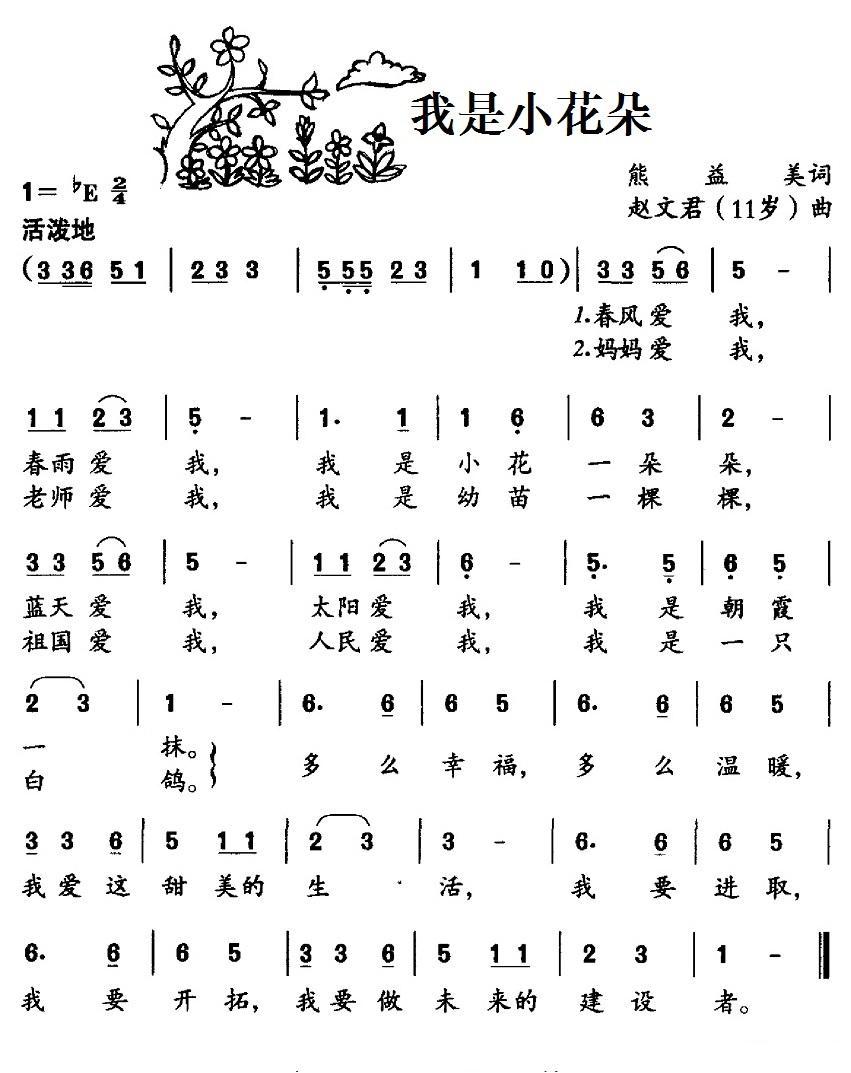 我是小花朵
熊 益 美词
1= ♭E 2/4
赵文君（11岁）曲
活泼地
(3 36 5 1 | 2 3 3 | 5 55 2 3 | 1 1 0) | 3 3 5 6 | 5 - |
1.春风爱 我，
2.妈妈爱 我，
1 1 2 3 | 5 - | 1. 1 | 1 6 | 6 3 | 2 - |
春雨爱 我， 我 是 小 花 一 朵 朵，
老师爱 我， 我 是 幼 苗 一 棵 棵，
3 3 5 6 | 5 - | 1 1 2 3 | 6 - | 5. 5 | 6 5 |
蓝天爱 我， 太阳爱 我， 我 是 朝 霞
祖国爱 我， 人民爱 我， 我 是 一 只
2 3 | 1 - | 6. 6 | 6 5 | 6. 6 | 6 5 |
一 抹。 多 么 幸 福， 多 么 温 暖，
白 鸽。
3 3 6 | 5 1 1 | 2 3 | 3 - | 6. 6 | 6 5 |
我 爱 这 甜 美的 生 · 活， 我 要 进 取，
6. 6 | 6 5 | 3 3 6 | 5 1 1 | 2 3 | 1 - ‖
我 要 开 拓， 我 要 做 未 来的 建 设 者。